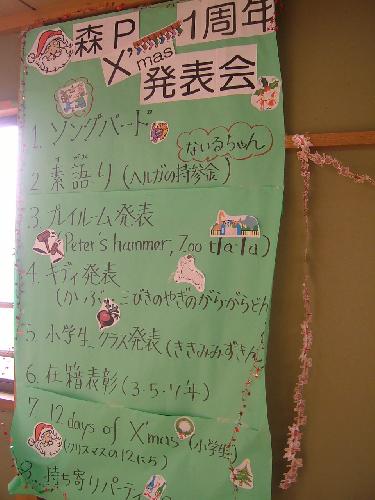 森P 1周年
X'mas
発表会
1. ソングバード
ないるちゃん
2. 素語り (ヘルガの持参金)
3. プレイルーム発表
(Peter's hammer, Zoo tla-la)
4. キディ発表
(かぶ、こびきのやぎのがらがらどん
5. 小学生クラス発表 (ききみみずきん
6. 在籍表彰 (3・5・7年)
7. 12 days of X'mas (小学生)
(クリスマスの12にち)
8. 持ち寄りパーティ